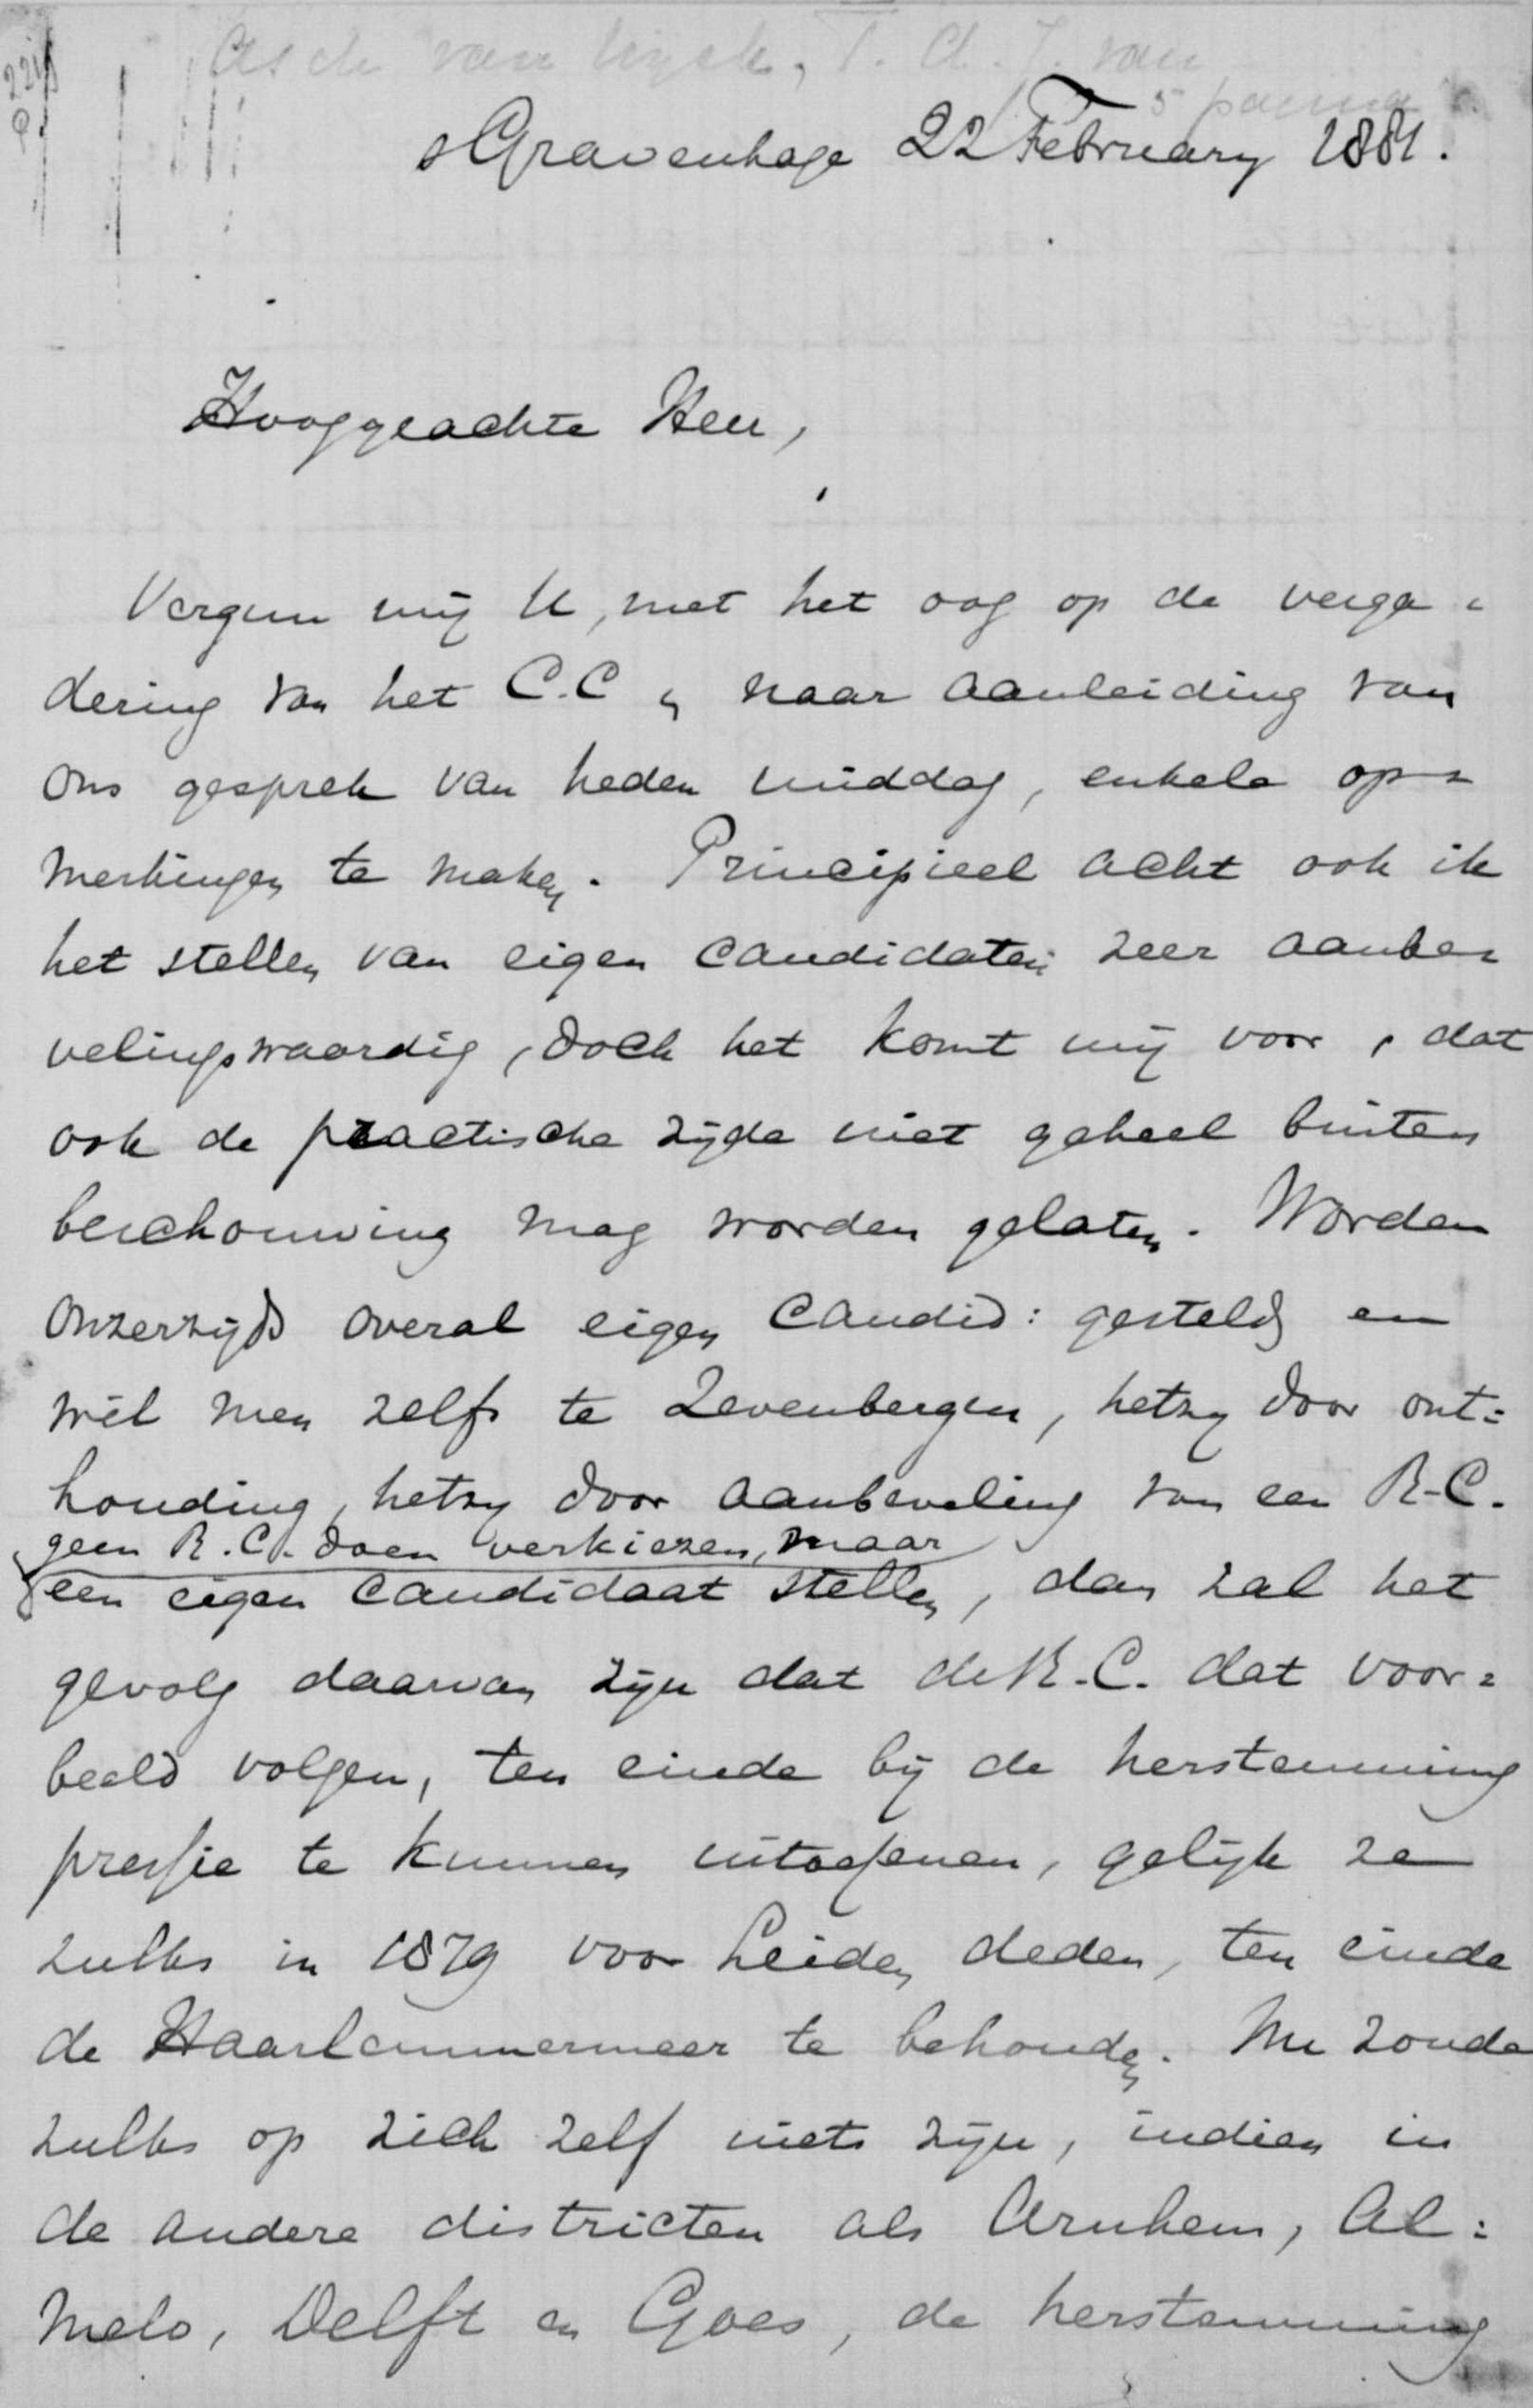 Asch van Wyck, T. A. J. van
sGravenhage 22 February 1881.
Hooggeachte Heer,
Vergun mij U, met het oog op de verga=
dering van het C.C en naar aanleiding van
ons gesprek van heden middag, enkele op=
merkingen te maken. Principieel acht ook ik
het stellen van eigen candidaten zeer aanbe=
velingswaardig, doch het komt mij voor, dat
ook de practische zijde niet geheel buiten
beschouwing mag worden gelaten. Worden
onzerzijds overal eigen candid: gesteld en
wil men zelfs te Zevenbergen, hetzy door ont=
houding, hetzy door aanbeveling van een R-C.
geen R.C. doen verkiezen, maar
een eigen candidaat stellen, dan zal het
gevolg daarvan zijn dat de R.C. dat voor=
beeld volgen, ten einde bij de herstemming
pressie te kunnen uitoefenen, gelijk ze
zulks in 1879 voor Leiden deden, ten einde
de Haarlemmermeer te behouden. Nu zoude
zulks op zich zelf niets zijn, indien in
de andere districten als Arnhem, Al=
melo, Delft en Goes, de herstemming